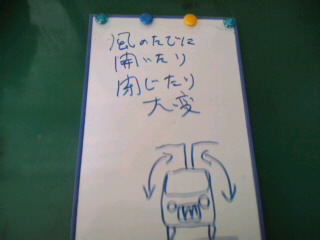 風のたびに
開いたり
閉じたり
大変